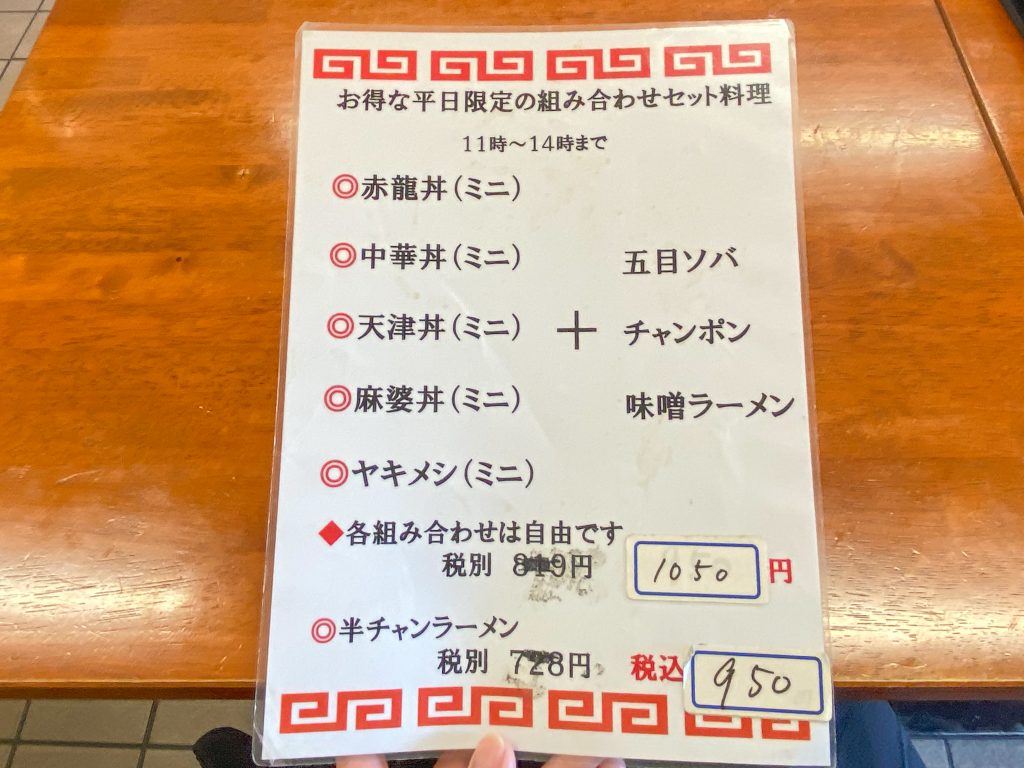 お得な平日限定の組み合わせセット料理
11時～14時まで
◎赤龍丼(ミニ)
◎中華丼(ミニ) 五目ソバ
◎天津丼(ミニ) ＋ チャンポン
◎麻婆丼(ミニ) 味噌ラーメン
◎ヤキメシ(ミニ)
◆各組み合わせは自由です
税別 円 1050 円
◎半チャンラーメン
税別 728円 税込 950